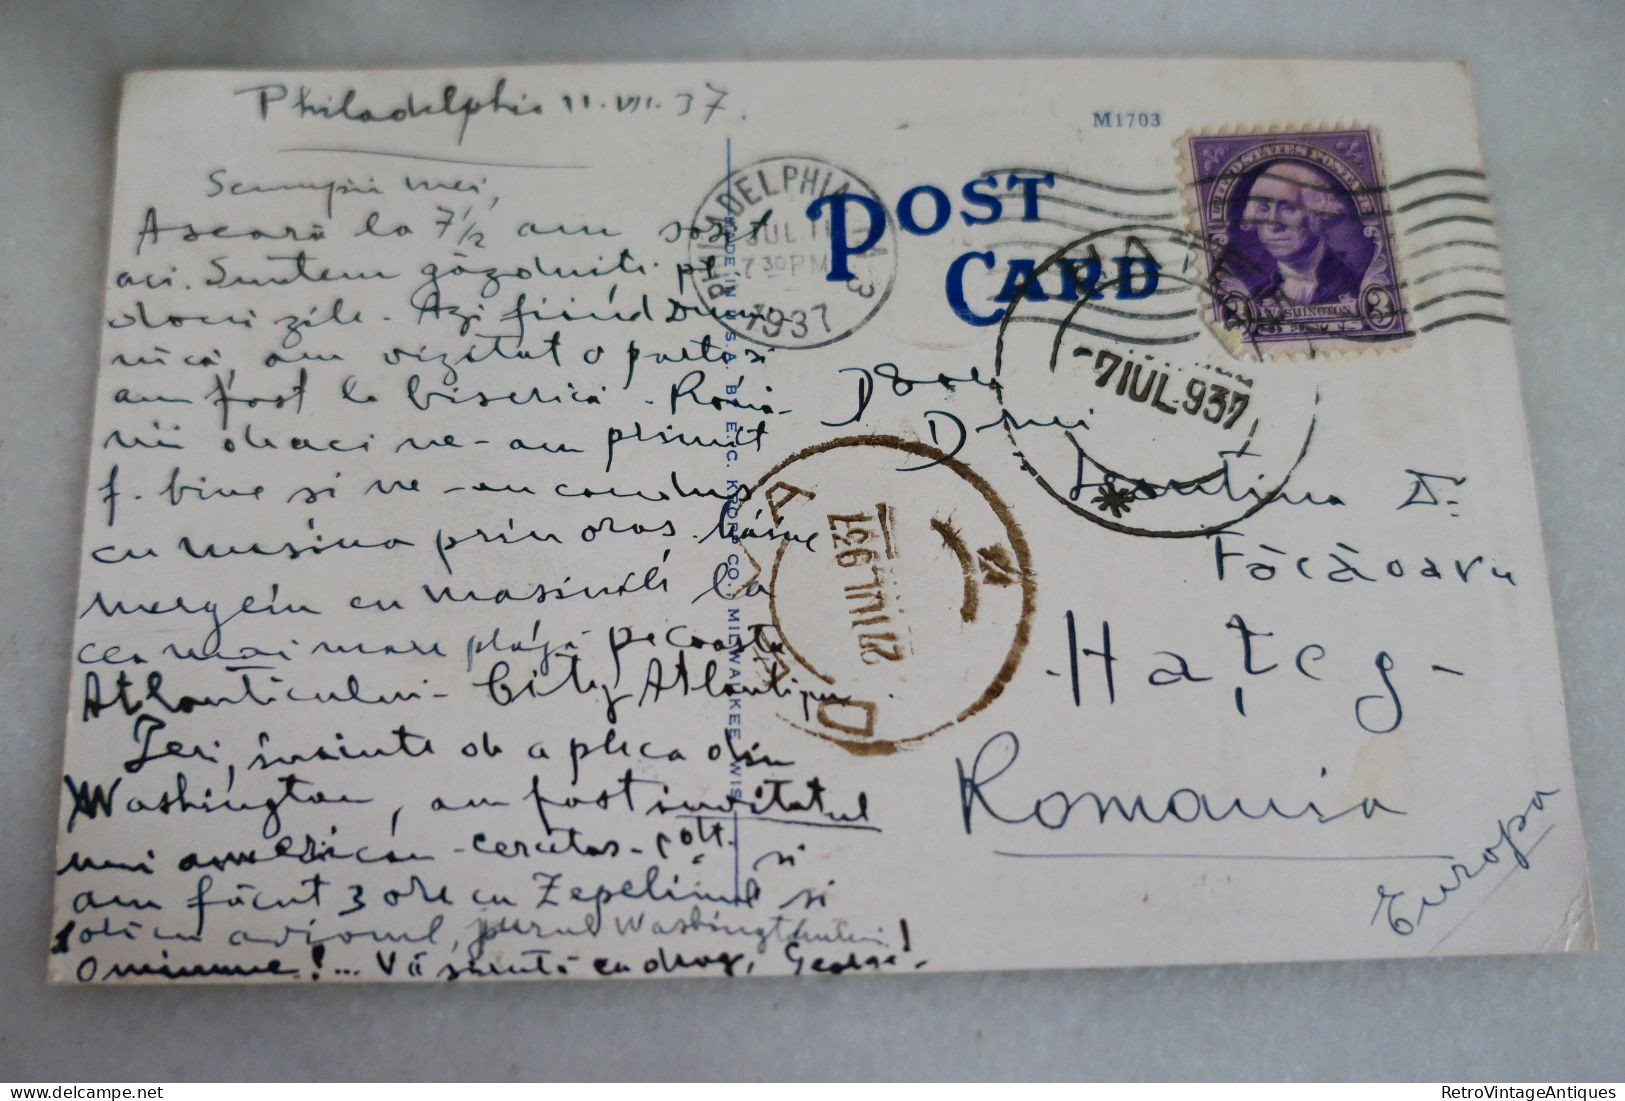 Philadelphia 11.VII.37.
Scumpii mei,
Aseară la 7 1/2 am sosit
aci. Suntem găzduiti pt
doui zile. Azi fiind Dumi-
nică, am vizitat o parte si
am fost la biserică. Româ-
nii de aci ne-au primit
f. bine si ne-au condus
cu masina prin oras. Mâine
mergem cu masinile la
cea mai mare plăgă pe coasta
Atlanticului - City Atlantique
Ieri, înainte de a pleca din
Washington, am fost invitatul
unui american - cercetas - și
am făcut 3 ore cu Zepelinul si
cu avionul, jurul Washingtonului!
O minune!... Vă sărută cu drag, George.
M1703
POST
CARD
PHILADELPHIA
JUL 11
7 30 PM
1937
MADE IN U.S.A. BY E. C. KROPP CO., MILWAUKEE, WIS.
UNITED STATES POSTAGE
3 WASHINGTON 3
-7 IUL. 937
21 IUL. 937
Dsale
Dnei
Leontina Dr.
Făcăoaru
-Hațeg-
Romania
Europa
RetroVintageAntiques